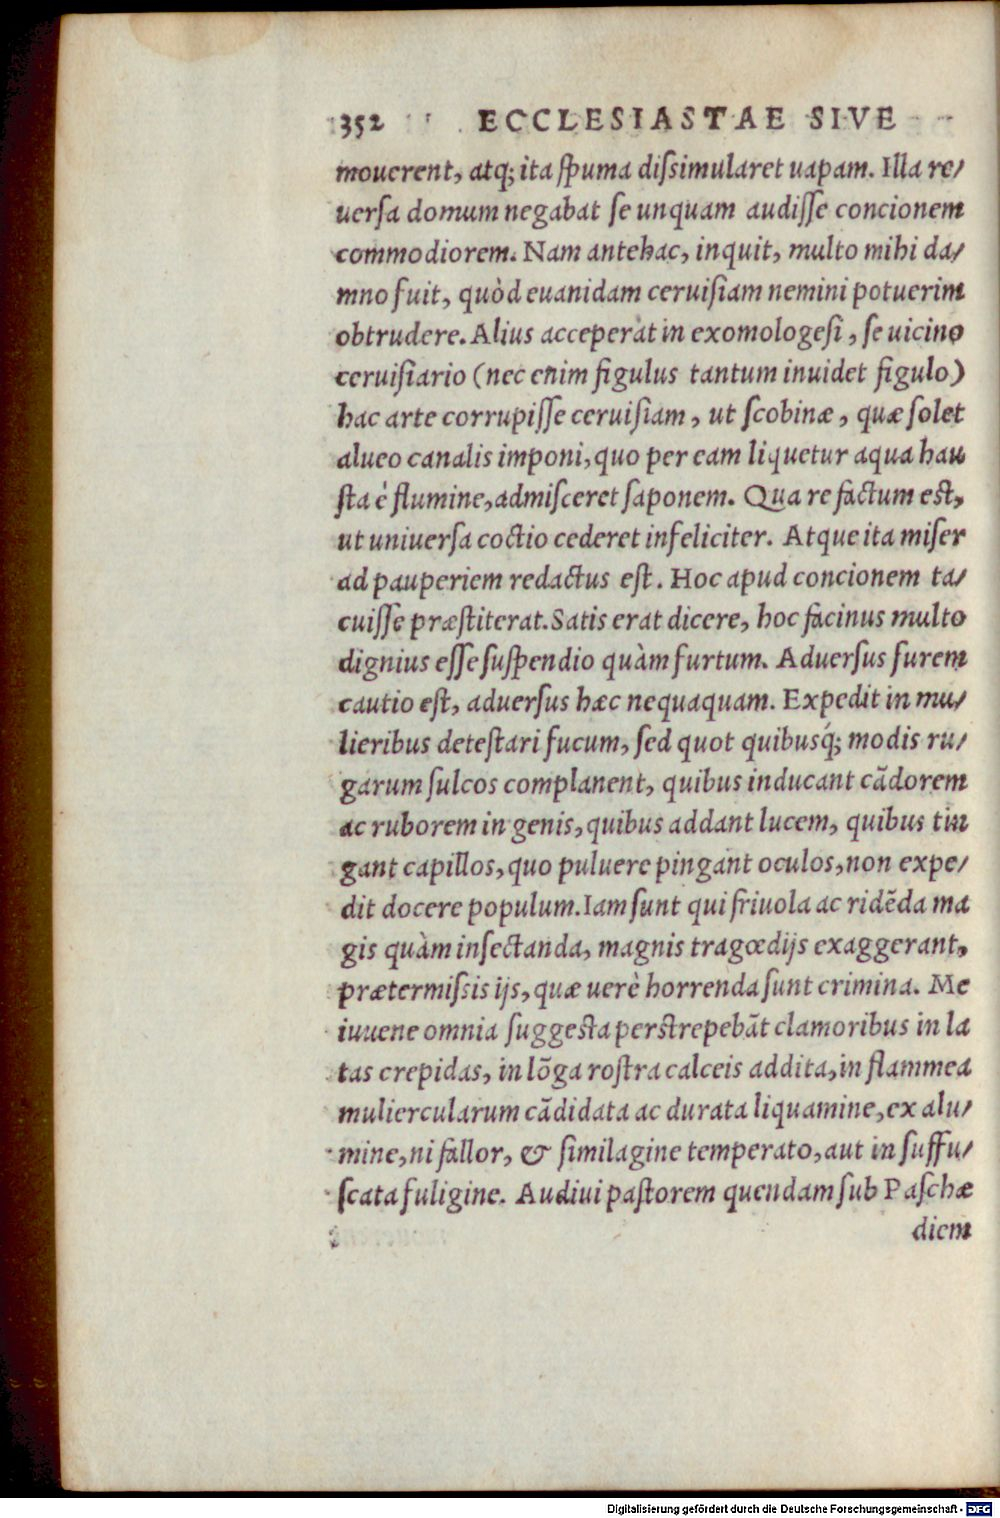 352 ECCLESIASTAE SIVE
mouerent, atq; ita ſpuma diſsimularet uapam. Illa re/
uerſa domum negabat ſe unquam audiſſe concionem
commodiorem. Nam antehac, inquit, multo mihi da/
mno fuit, quòd euanidam ceruiſiam nemini potuerim
obtrudere. Alius acceperat in exomologeſi, ſe uicino
ceruiſiario (nec enim figulus tantum inuidet figulo)
hac arte corrupiſſe ceruiſiam, ut ſcobinæ, quæ ſolet
alueo canalis imponi, quo per eam liquetur aqua hau
ſta è flumine, admiſceret ſaponem. Qua re factum eſt,
ut uniuerſa coctio cederet infeliciter. Atque ita miſer
ad pauperiem redactus eſt. Hoc apud concionem ta/
cuiſſe præſtiterat. Satis erat dicere, hoc facinus multo
dignius eſſe ſuſpendio quàm furtum. Aduerſus furem
cautio eſt, aduerſus hæc nequaquam. Expedit in mu/
lieribus deteſtari fucum, ſed quot quibusq́; modis ru/
garum ſulcos complanent, quibus inducant cãdorem
ac ruborem in genis, quibus addant lucem, quibus tin
gant capillos, quo puluere pingant oculos, non expe/
dit docere populum. Iam ſunt qui friuola ac ridẽda ma
gis quàm inſectanda, magnis tragœdijs exaggerant,
prætermiſsis ijs, quæ uerè horrenda ſunt crimina. Me
iuuene omnia ſuggeſta perſtrepebãt clamoribus in la
tas crepidas, in lõga roſtra calceis addita, in flammea
muliercularum cãdidata ac durata liquamine, ex alu/
mine, ni fallor, & ſimilagine temperato, aut in ſuffu/
ſcata fuligine. Audiui paſtorem quendam ſub Paſchæ
diem
Digitalisierung gefördert durch die Deutsche Forschungsgemeinschaft - DFG